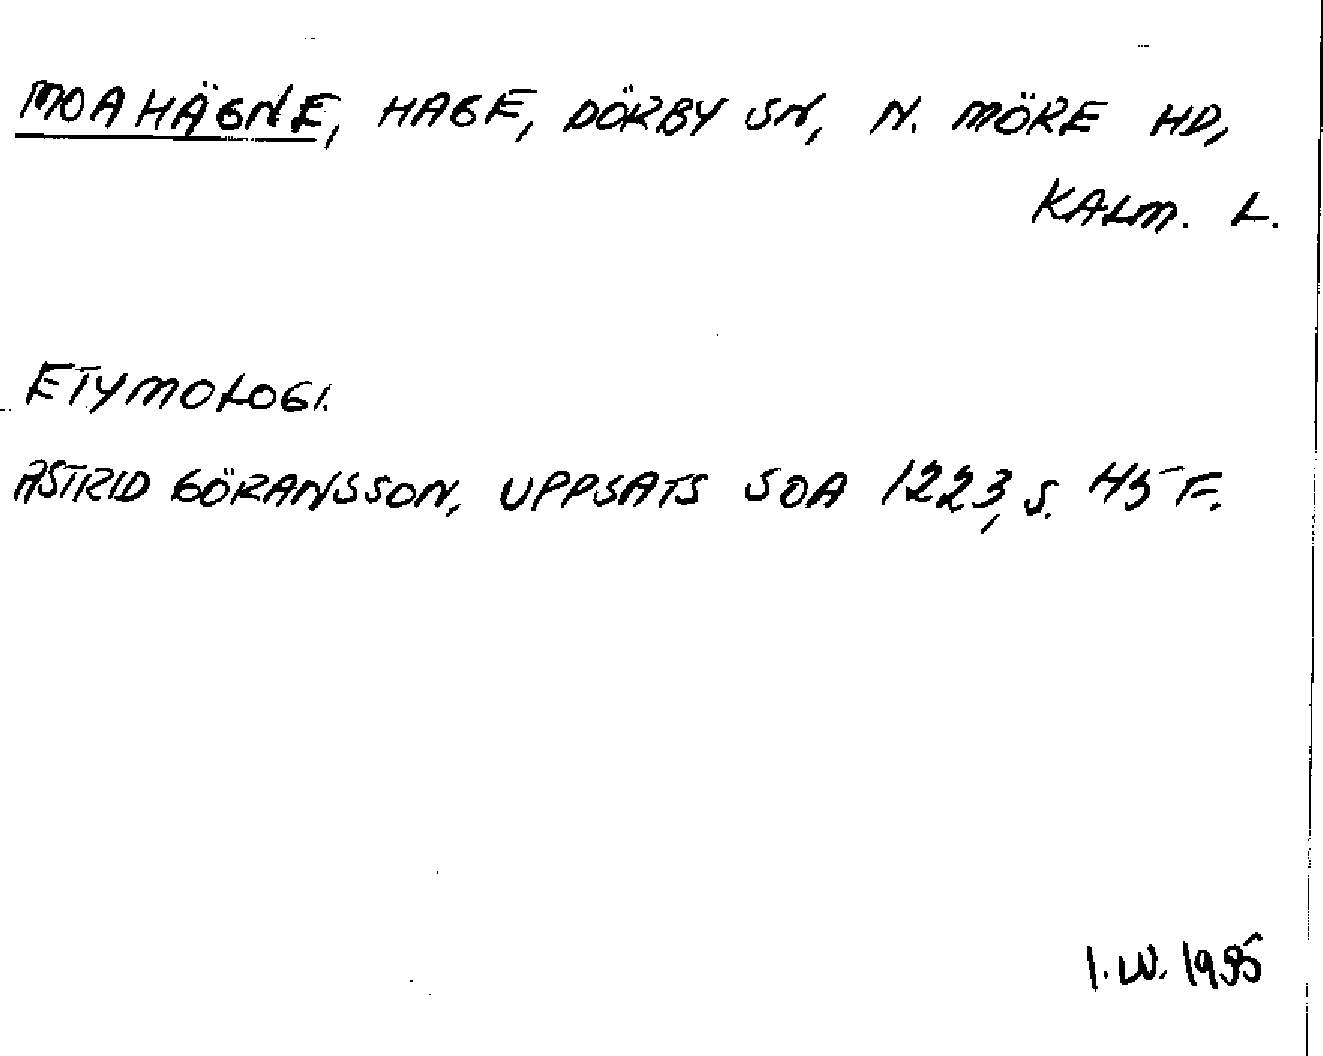 MOAHÄGNE, HAGE, DÖRBY SN, N. MÖRE HD,
KALM. L.
ETYMOLOGI.
ASTRID GÖRANSSON, UPPSATS SOA 1223, S. 45 F.
I.W. 1995